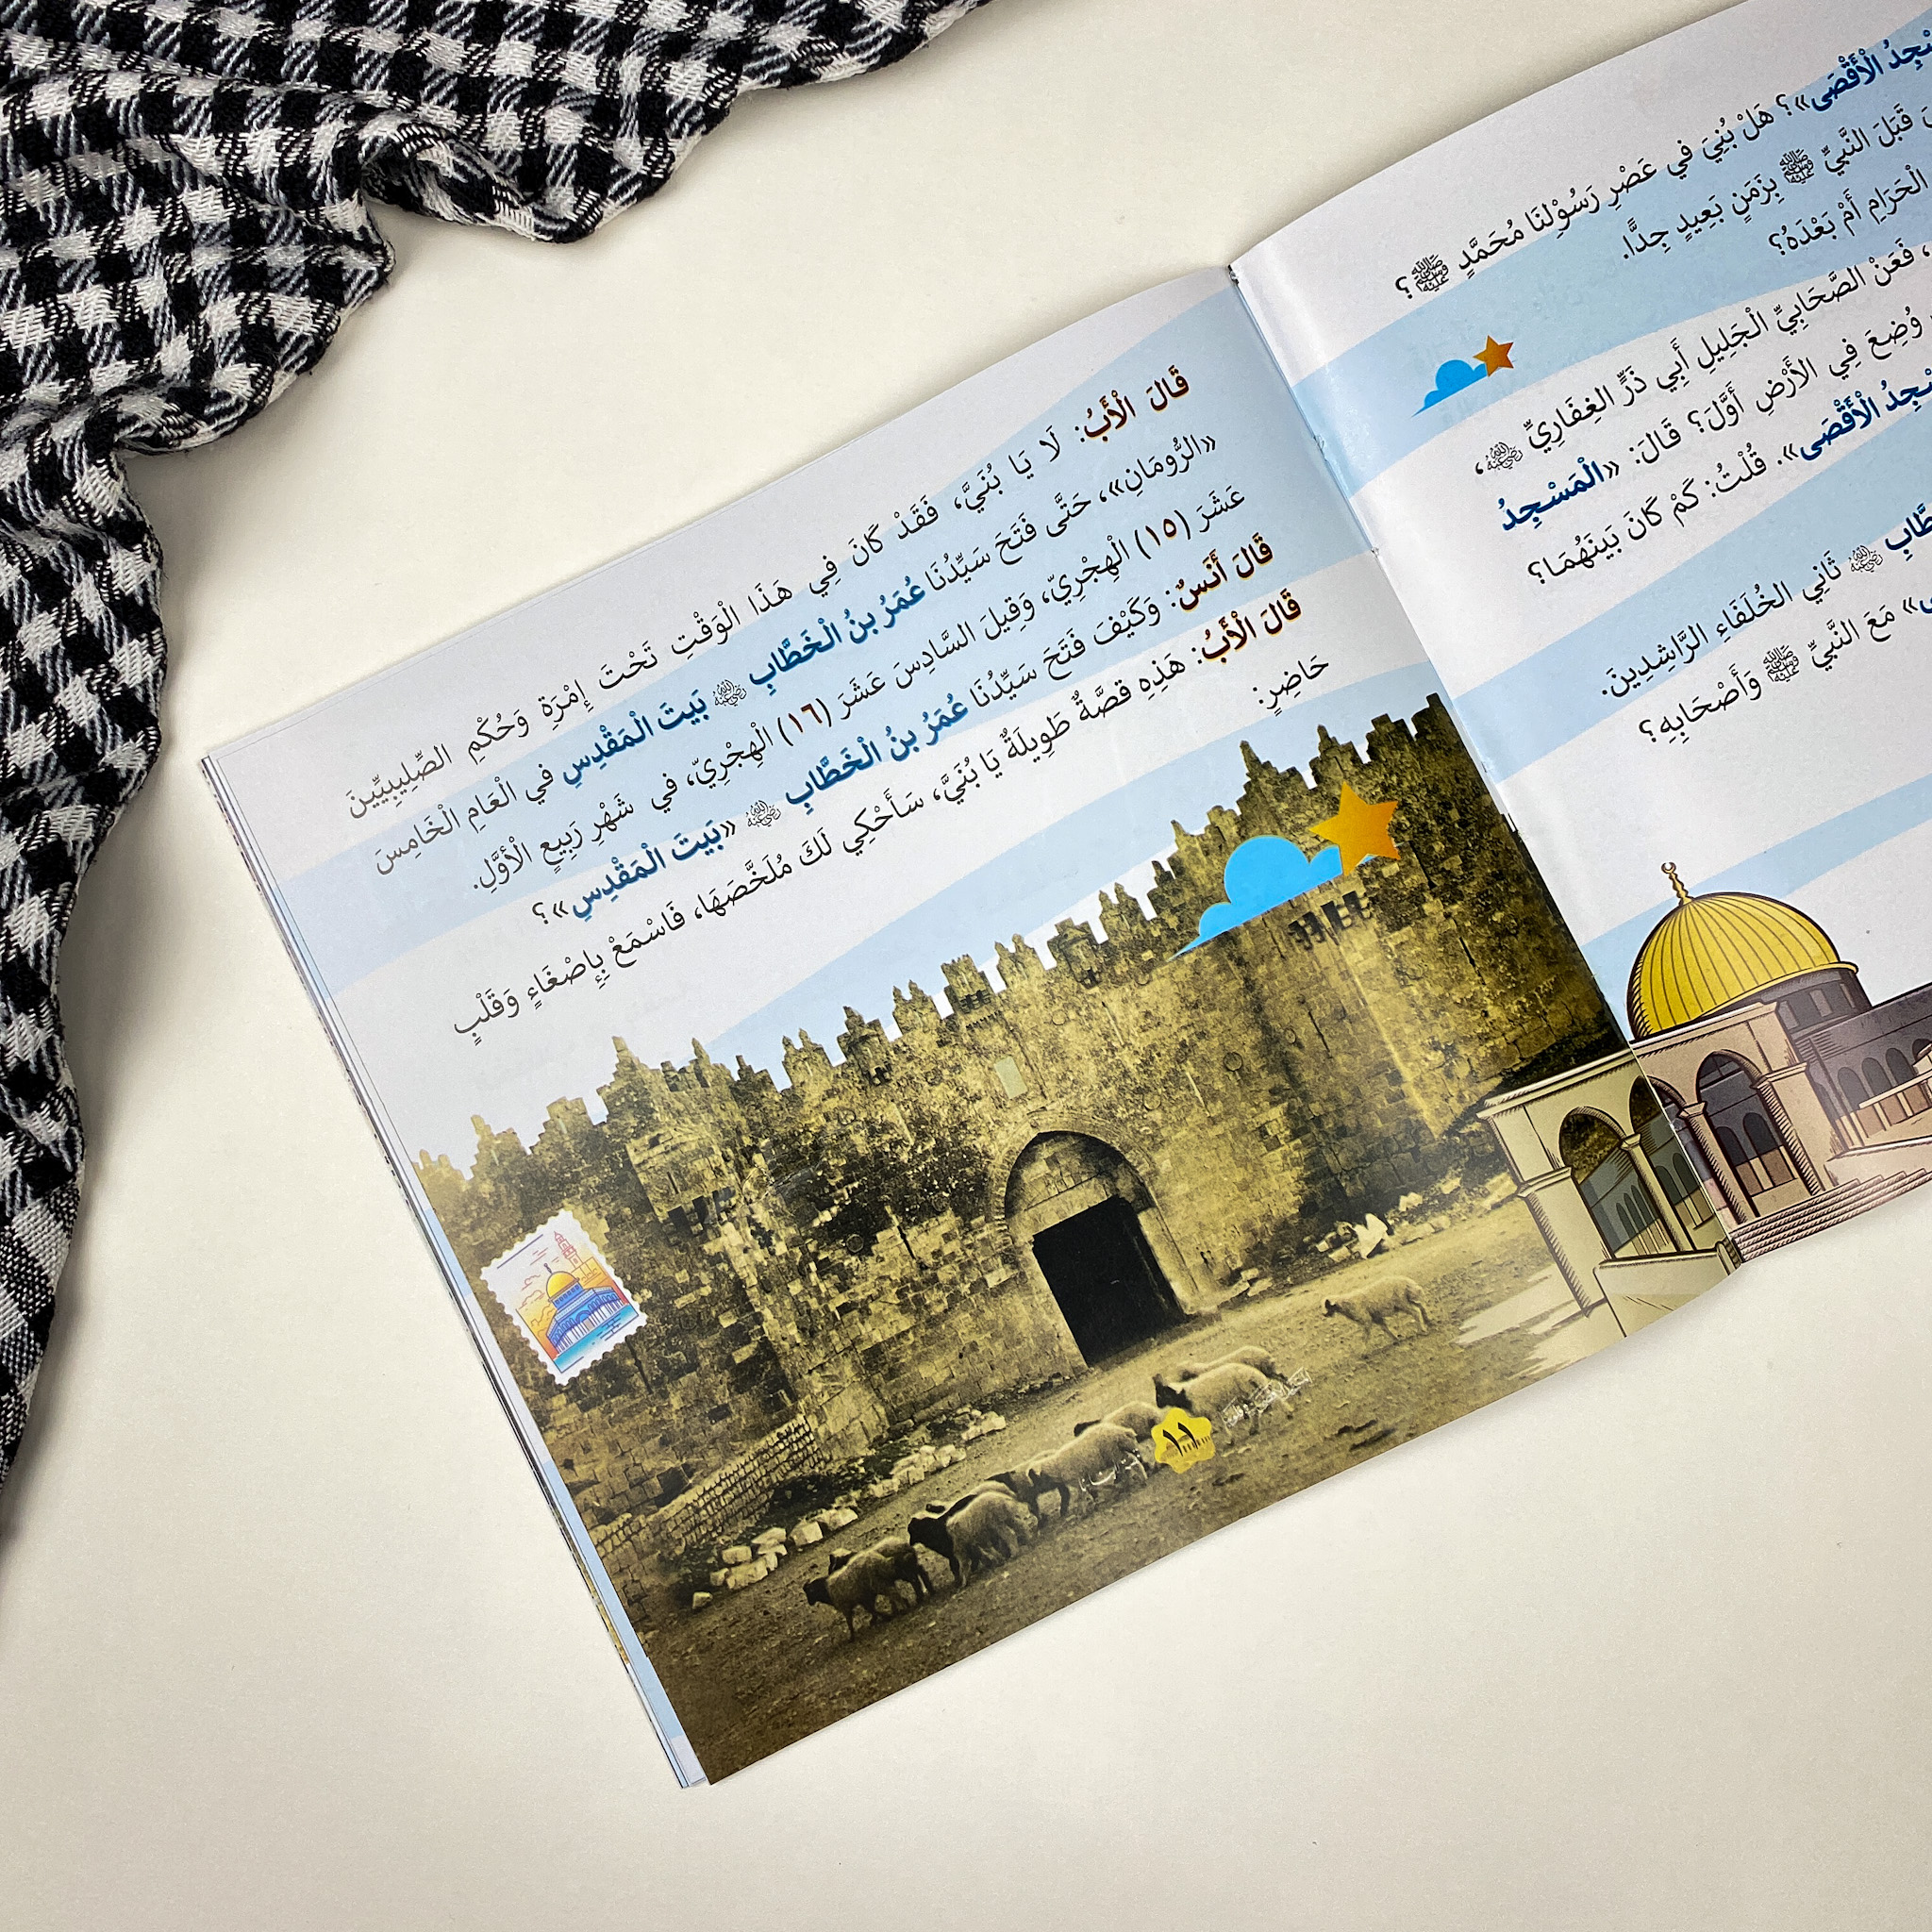 سْجِدُ الْأَقْصَى»؟ هَلْ بُنِيَ فِي عَصْرِ رَسُوْلِنَا مُحَمَّدٍ ﷺ؟
قَبَلَ النَّبِيِّ ﷺ بِزَمَنٍ بَعِيدٍ جِدًّا.
الْحَرَامِ أَمْ بَعْدَهُ؟
، فَعَنْ الصَّحَابِيِّ الْجَلِيلِ أَبِي ذَرٍّ الغِفَارِيِّ رضي الله عنه،
وُضِعَ فِي الأَرْضِ أَوَّلَ؟ قَالَ: «الْمَسْجِدُ
سْجِدُ الْأَقْصَى». قُلْتُ: كَمْ كَانَ بَيَنَهُمَا؟
طَّابِ رضي الله عنه ثَانِي الخُلَفَاءِ الرَّاشِدِينَ.
» مَعَ النَّبِيِّ ﷺ وَأَصْحَابِهِ؟
قَالَ الْأَبُ: لَا يَا بُنَيَّ، فَقَدْ كَانَ فِي هَذَا الْوَقْتِ تَحْتَ إِمْرَةِ وَحُكْمِ الصِّلِيبِيِّينَ
«الرُّومَانِ»، حَتَّى فَتَحَ سَيِّدُنَا عُمَرُ بنُ الْخَطَّابِ رضي الله عنه بَيتَ الْمَقْدِسِ فِي الْعَامِ الْخَامِسَ
عَشَرَ (١٥) الْهِجْرِيّ، وَقِيلَ السَّادِسَ عَشَرَ (١٦) الْهِجْرِيّ، فِي شَهْرِ رَبِيعِ الْأَوَّلِ.
قَالَ أَنَسٌ: وَكَيْفَ فَتَحَ سَيِّدُنَا عُمَرُ بنُ الْخَطَّابِ رضي الله عنه «بَيتَ الْمَقْدِسِ»؟
قَالَ الْأَبُ: هَذِهِ قصَّةٌ طَوِيلَةٌ يَا بُنَيَّ، سَأَحْكِي لَكَ مُلَخَّصَهَا، فَاسْمَعْ بِإِصْغَاءٍ وَقَلْبٍ
حَاضِرٍ:
١١